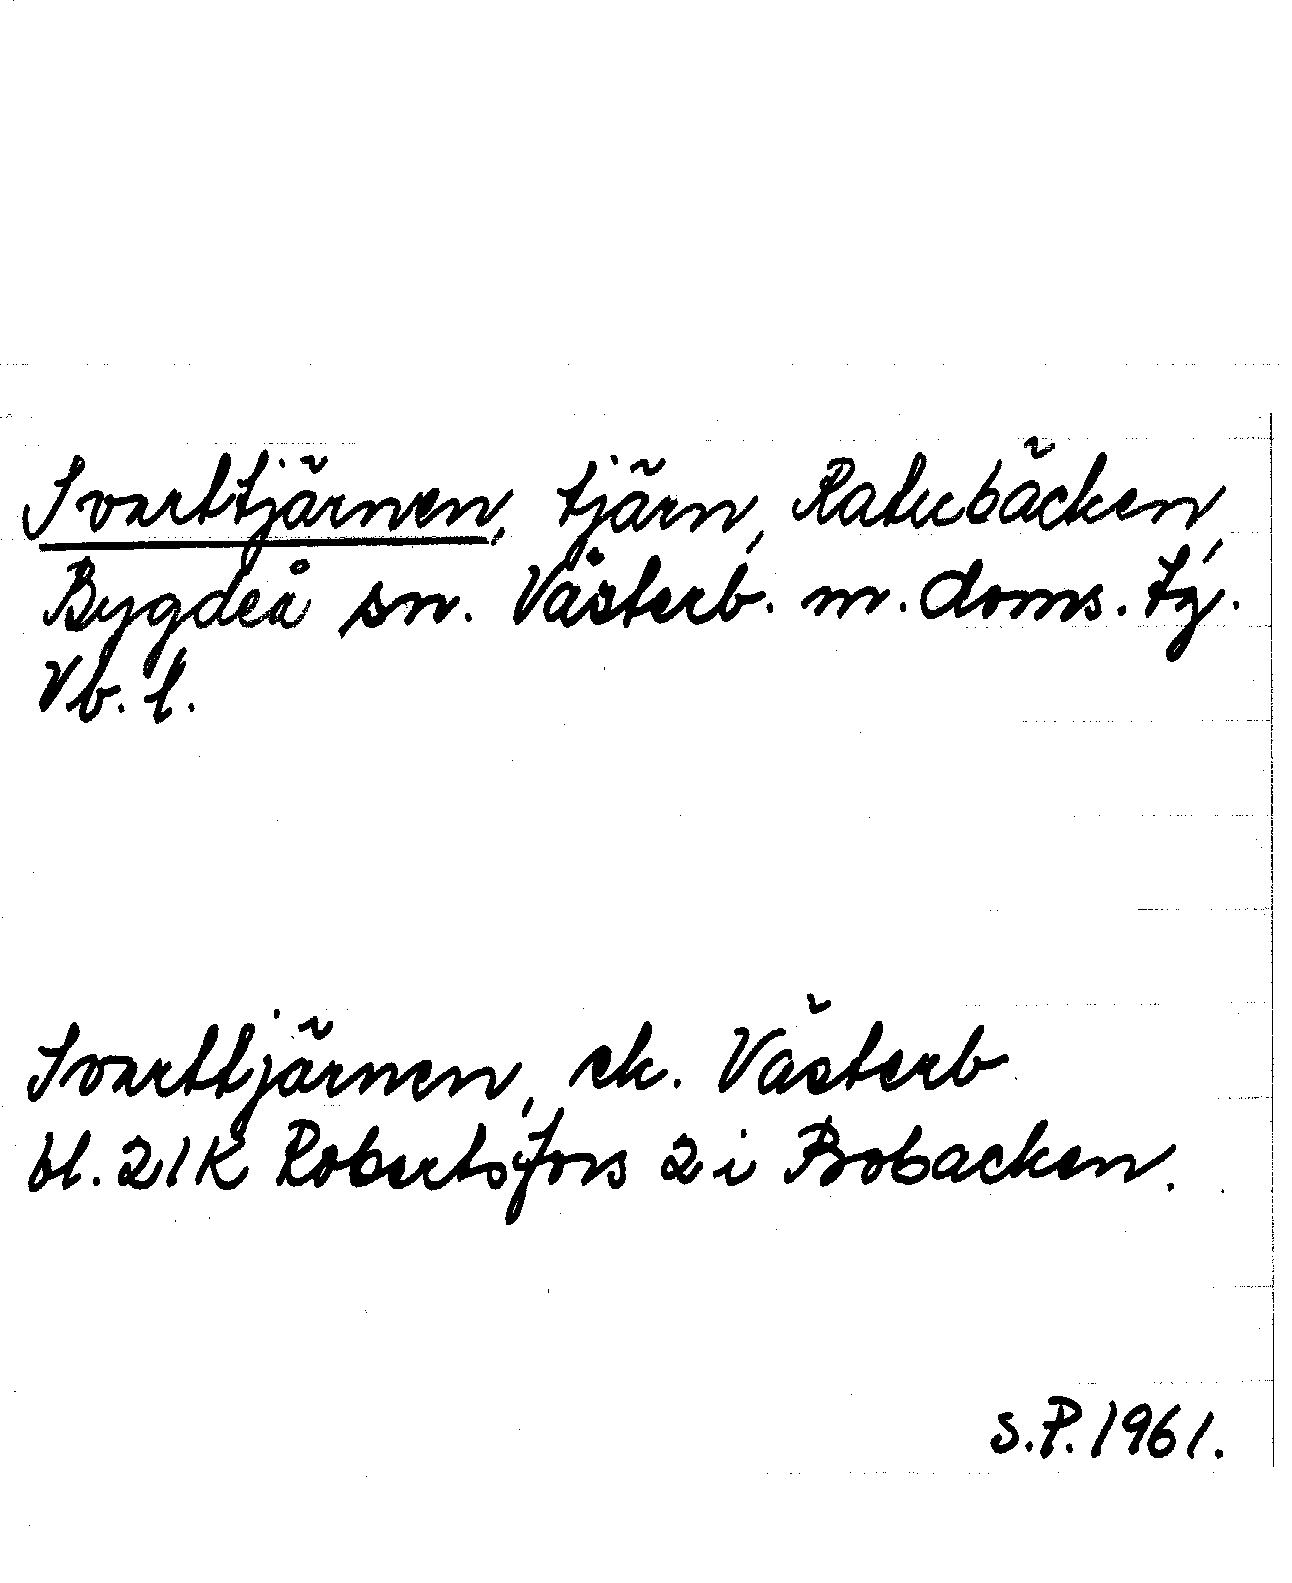 Svarttjärnen, tjärn, Ratubäcken,
Bygdeå sn. Västerb. m. doms. tg.
Vb. l.
Svarttjärnen, ek. Västerb
bl. 21K Robertsfors 2 i Brobacken.
S.P. 1961.